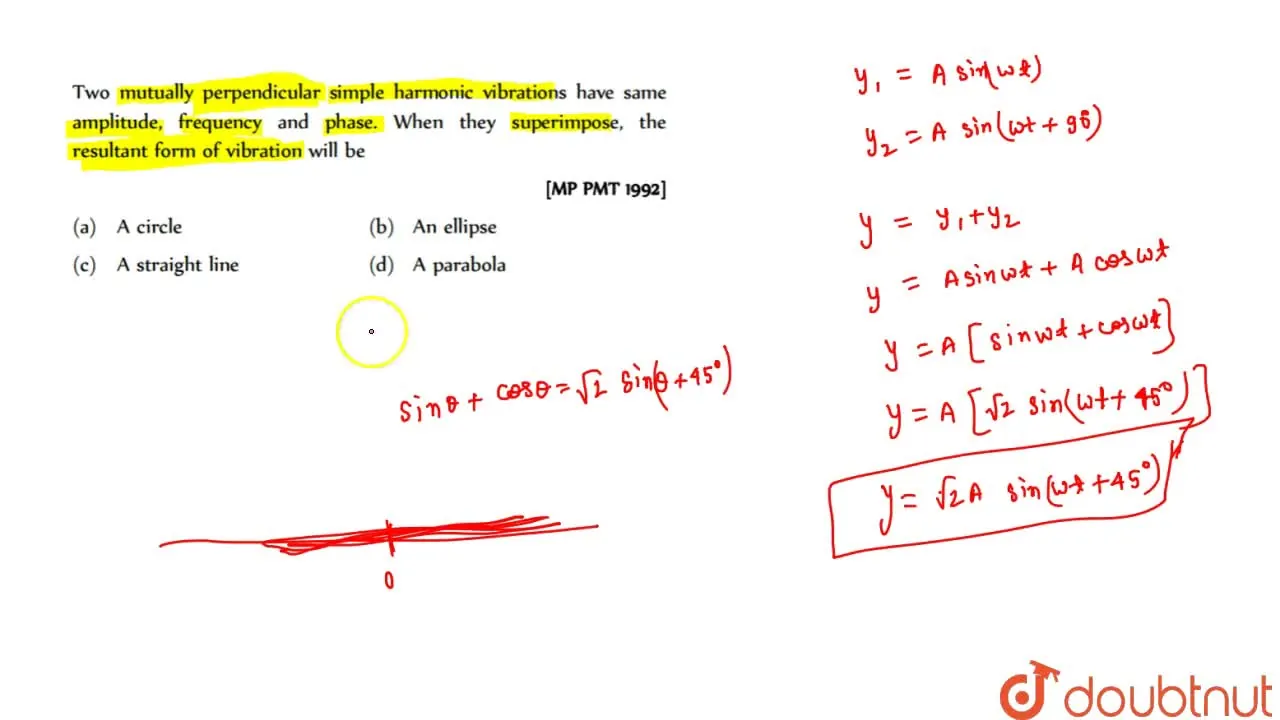 Two mutually perpendicular simple harmonic vibrations have same
amplitude, frequency and phase. When they superimpose, the
resultant form of vibration will be
[MP PMT 1992]
(a) A circle (b) An ellipse
(c) A straight line (d) A parabola
sinθ + cosθ = √2 sin(θ+45°)
0
y₁ = A sin(ωt)
y₂ = A sin(ωt + 90°)
y = y₁+y₂
y = A sinωt + A cosωt
y = A [sinωt + cosωt]
y = A [√2 sin(ωt + 45°)]
y = √2 A sin(ωt + 45°)
doubtnut